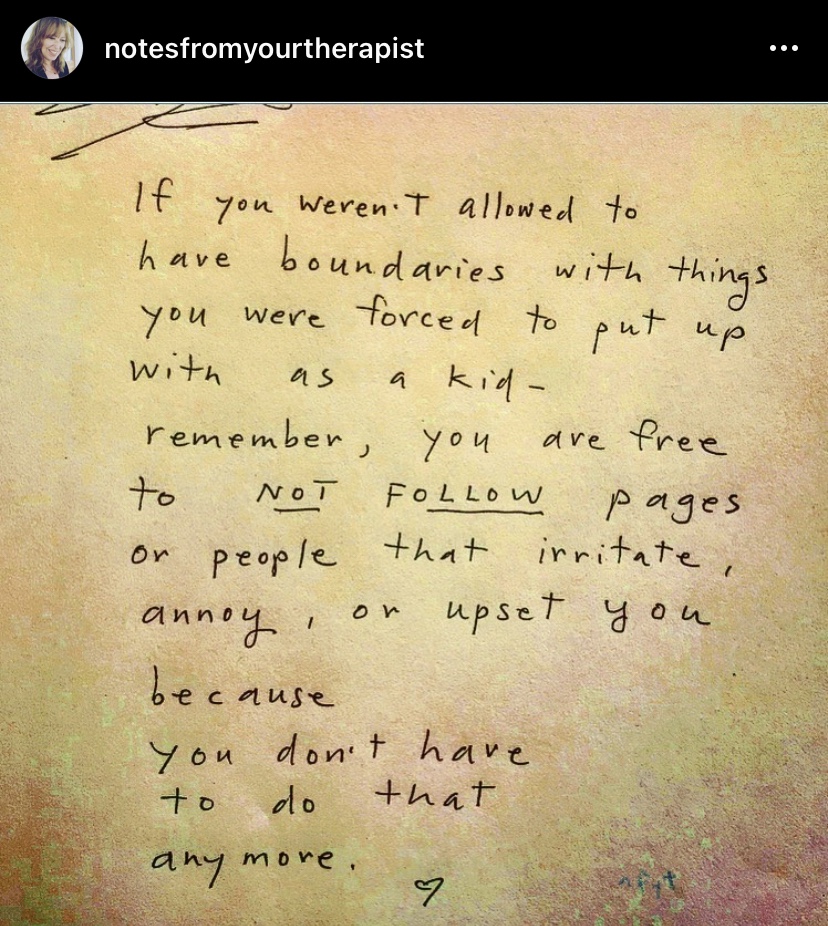 notesfromyourtherapist
If you weren't allowed to
have boundaries with things
you were forced to put up
with as a kid-
remember, you are free
to NOT FOLLOW pages
or people that irritate,
annoy, or upset you
because
you don't have
to do that
anymore.
nfyt